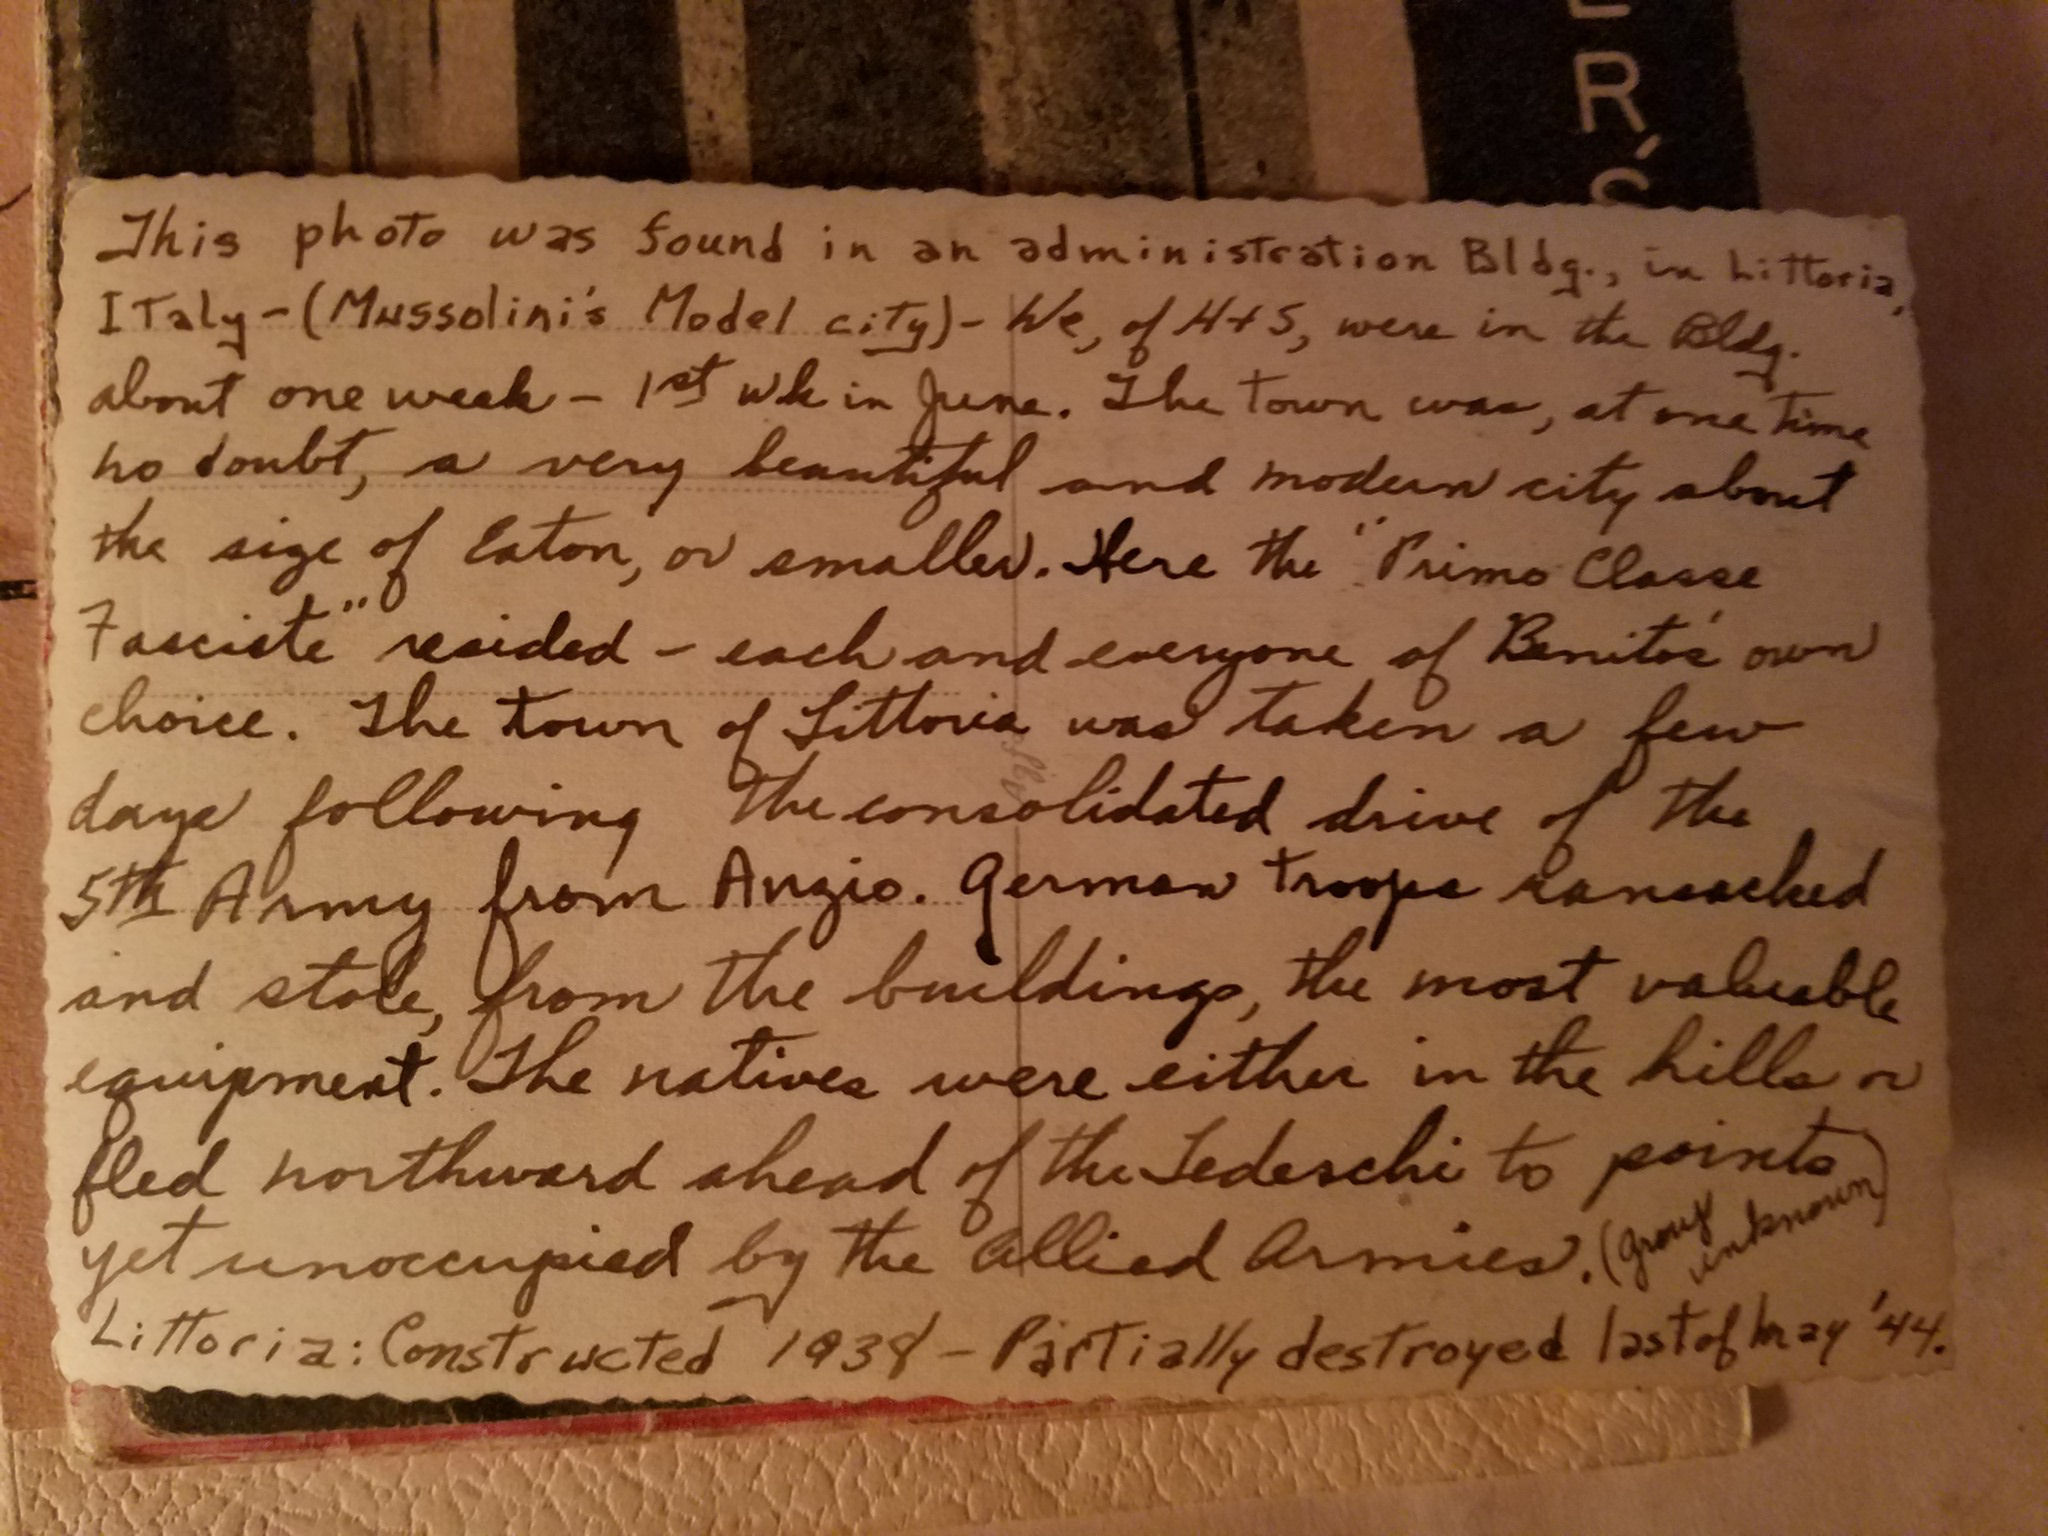 ER'S
This photo was found in an administration Bldg., in Littoria,
ITaly - (Mussolini's Model city) - We, of H+S, were in the Bldg.
about one week - 1st wk in June. The Town was, at one time
no doubt, a very beautiful and modern city about
the size of Eaton, or smaller. Here the "Primo Classe
Fasciste" resided - each and everyone of Benito's own
choice. The town of Littoria was taken a few
days following the consolidated drive of the
5th Army from Anzio. German troops ransacked
and stole, from the buildings, the most valuable
equipment. The natives were either in the hills or
fled northward ahead of the Tedeschi to points
yet unoccupied by the Allied Armies. (group unknown)
Littoria: Constructed 1938 - Partially destroyed last of may '44.